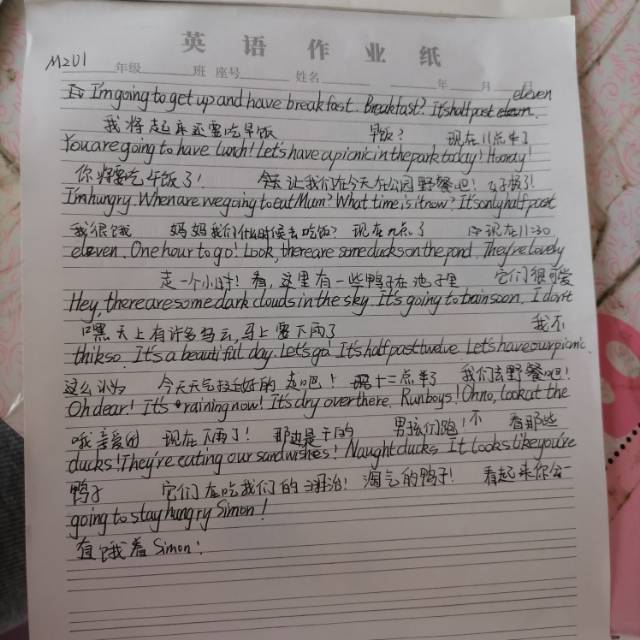 英语作业纸
M2U1 年级 班 座号 姓名 年 月 日
I'm going to get up and have breakfast. Breakfast? It's half past eleven.
我将起床还要吃早饭 早饭? 现在11点半了
You are going to have lunch! Let's have a picnic in the park today! Hooray!
你将要吃午饭了! 让我们在今天在公园野餐吧!
I'm hungry. When are we going to eat Mum? What time is it now? It's only half past
我很饿 妈妈我们什么时候去吃饭? 现在几点了 现在11:30
eleven. One hour to go! Look, there are some ducks on the pond. They're lovely
走一个小时! 看,这里有一些鸭子在池子里 它们很可爱
Hey, there are some dark clouds in the sky. It's going to rain soon. I don't
嘿 天上有许多乌云,马上要下雨了 我不
thik so. It's a beautiful day. Let's go! It's half past twelve. Let's have our picnic.
这么认为 今天天气挺好的 走吧! 十二点半了 我们去野餐吧!
Oh dear! It's raining now! It's dry over there. Run boys! Oh no, look at the
哦亲爱的 现在下雨了! 那边是干的 男孩们跑! 不 看那些
ducks! They're eating our sandwishes! Naught ducks It looks like you're
鸭子 它们在吃我们的三明治! 淘气的鸭子! 看起来你会一
going to stay hungry Simon!
直饿着Simon!